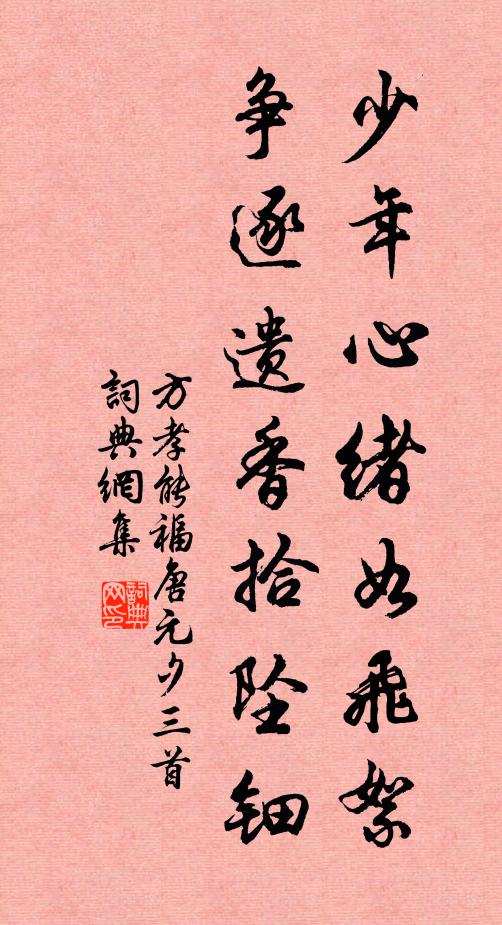 少年心绪如飛絮
争逐遗香拾坠钿
方孝能福唐元夕三首
詞典網集
詞典网印